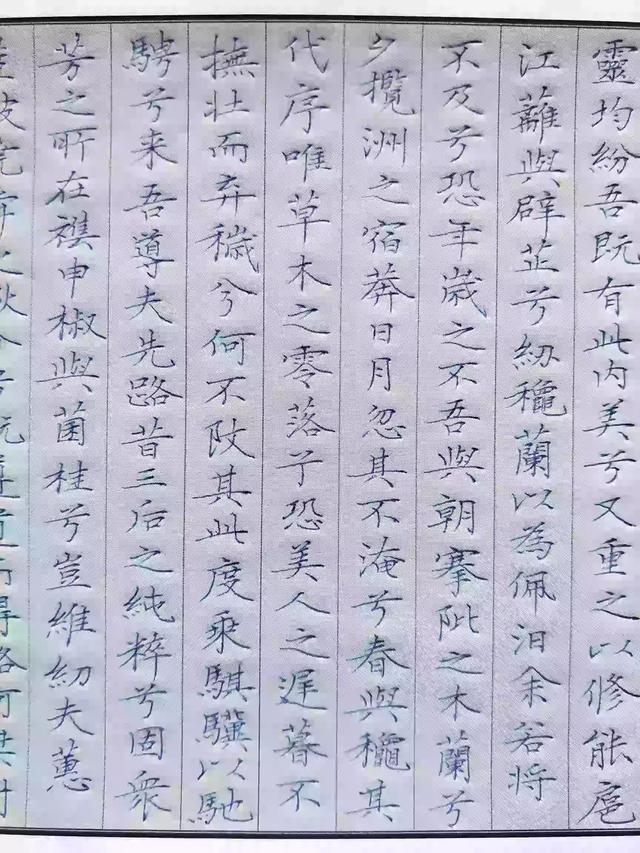 靈均紛吾既有此内美兮又重之以修能扈
江蘺與辟芷兮紉穐蘭以為佩汩余若將
不及兮恐年歲之不吾與朝搴阰之木蘭兮
夕攬洲之宿莽日月忽其不淹兮春與穐其
代序唯草木之零落兮恐美人之遲暮不
撫壯而弃穢兮何不改其此度乘騏驥以馳
騁兮来吾導夫先路昔三后之純粹兮固衆
芳之所在襍申椒與菌桂兮豈維紉夫蕙